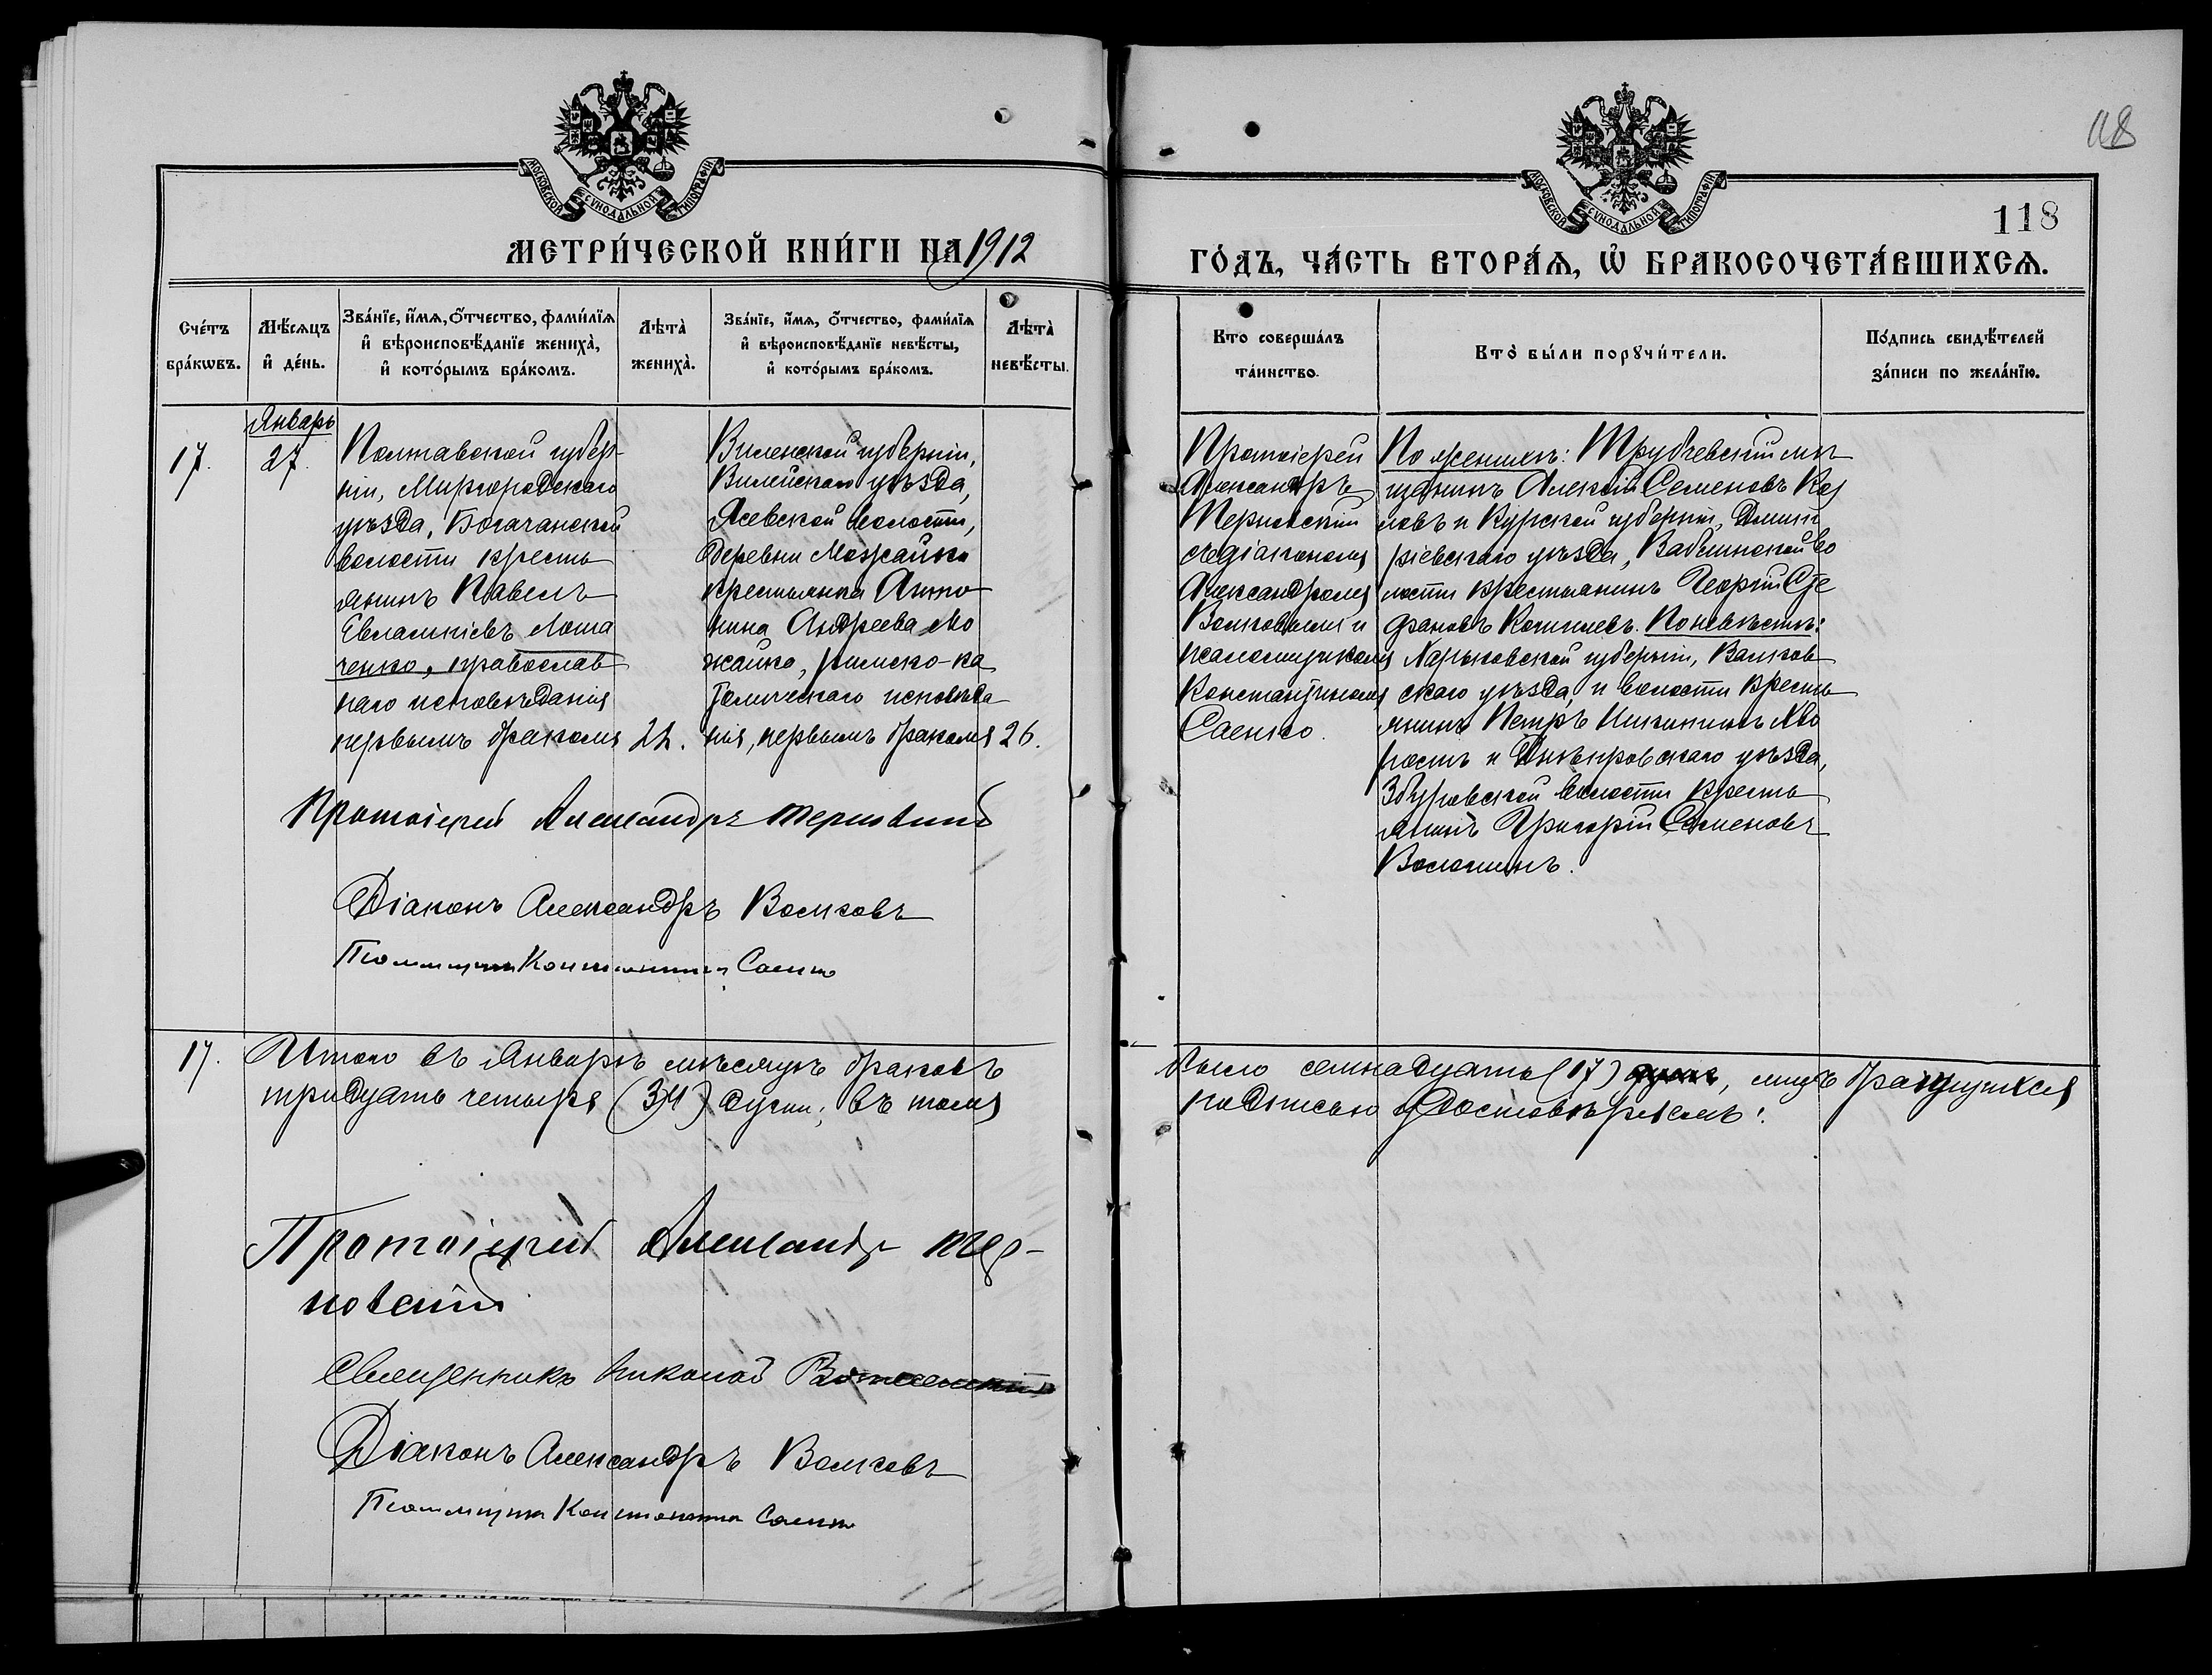 118
118
МОСКОВСКОЙ СѴНОДАЛЬНОЙ ТИПОГРАФІИ
МОСКОВСКОЙ СѴНОДАЛЬНОЙ ТИПОГРАФІИ
МЕТРИ́ЧЕСКОЙ КНИ́ГИ НА 1912
ГО́ДЪ, ЧА́СТЬ ВТОРА́Ѧ, Ѡ҆ БРАКОСОЧЕТА́ВШИХСѦ.
Сче́тъ
бра́кѡвъ.
Мѣ́сѧцъ
и҆ де́нь.
Зва́нїе, и҆́мѧ, ѻ҆́тчество, фами́лїѧ
и҆ вѣроисповѣ́данїе жениха̀,
и҆ кото́рымъ бра́комъ.
Лѣта̀
жениха̀.
Зва́нїе, и҆́мѧ, ѻ҆́тчество, фами́лїѧ
и҆ вѣроисповѣ́данїе невѣ́сты,
и҆ кото́рымъ бра́комъ.
Лѣта̀
невѣ́сты.
Кто соверша́лъ
та́инство.
Кто̀ бы́ли порꙋчи́тели.
По́дпись свидѣ́телей
за́писи по жела́нїю.
17.
Январь
27.
Полтавской губер-
ніи, Миргородскаго
уѣзда, Богачанской
волости кресть
янинъ Павелъ
Евлампіевъ Лоша
ченко, православ
наго исповѣданія
первымъ бракомъ
22.
Виленской губерніи,
Вилейскаго уѣзда,
волости,
деревни Можайки
крестьянка Анто
нина Андреева Мо
жайко, римско-ка
толическаго исповѣда
нія, первымъ бракомъ
26.
Протоіерей
Александръ
Терновский
съ діакономъ
Александромъ
Волковымъ и
псаломщикомъ
Константиномъ
Саенко.
По женихѣ: Трубчевскій мѣ
щанинъ Алексѣй Семеновъ Коз
ловъ и Курской губерніи, Дмит
ріевскаго уѣзда, волости
крестьянинъ Георгій Сте
фановъ По невѣстѣ:
Харьковской губерніи, Валков
скаго уѣзда, и волости кресть
янинъ Петръ Никитинъ Хво
ростъ и Днѣпровскаго уѣзда,
Збурьевской волости кресть
янинъ Григорій Семеновъ
Волошинъ.
Протоіерей Александръ Терновский
Діаконъ Александръ Волковъ
Псаломщикъ Константинъ Саенко
17.
Итого въ Январѣ мѣсяцѣ браковъ
было семнадцать (17), лицъ брачущихся
тридцать четыре (34) души; въ томъ
подписью удостовѣряемъ:
Протоіерей Александръ Тер-
новский
Священникъ Николай
Діаконъ Александръ Волковъ
Псаломщикъ Константинъ Саенко